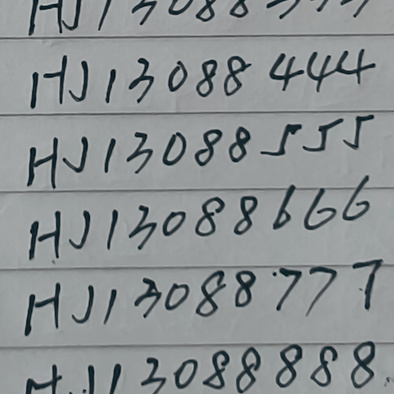 HJ13088333
HJ13088444
HJ13088555
HJ13088666
HJ13088777
HJ13088888